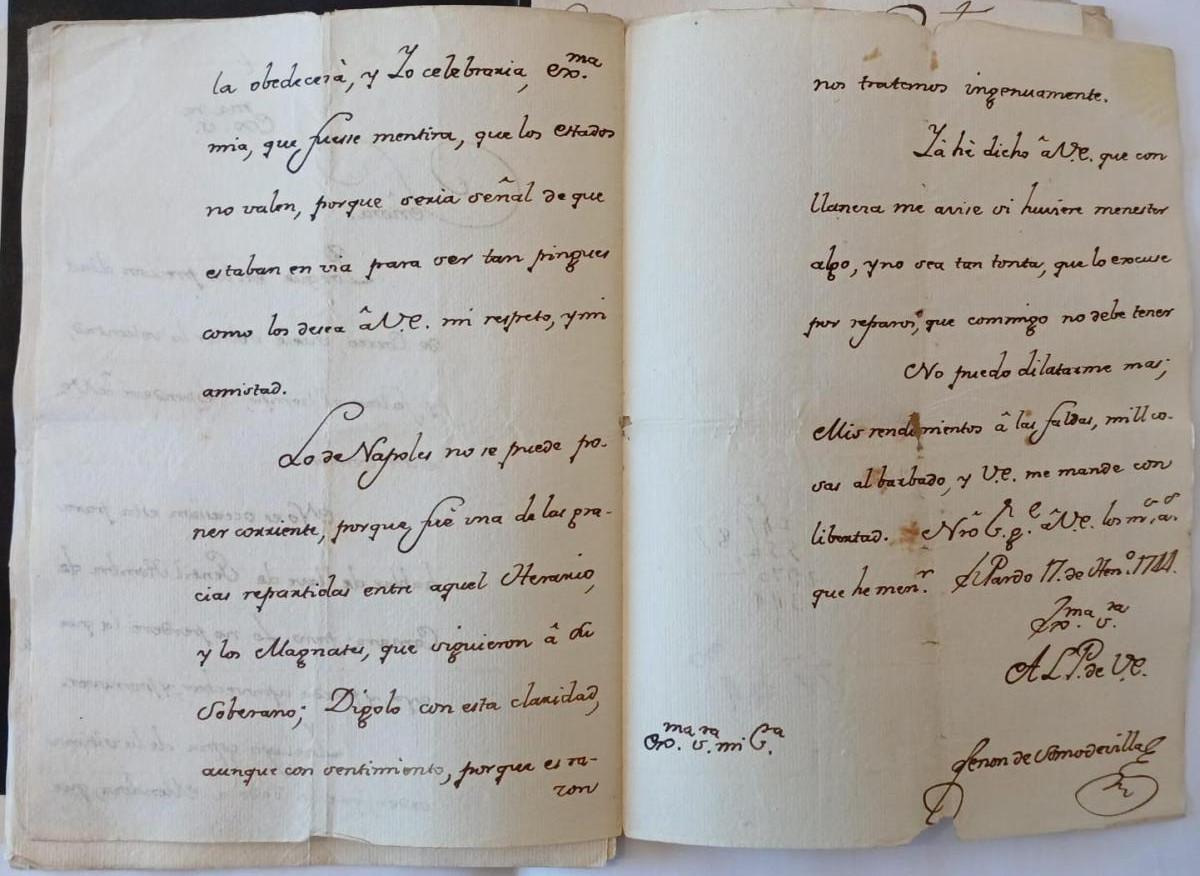 la obedecerà, y Yo celebraria, exm.ª
mia, que fuesse mentira, que los estados
no valen, porque seria señal de que
estaban en via para ser tan pingues
como los desea â V.e. mi respeto, y mi
amistad.
Lo de Napoles no se puede po-
ner corriente, porque fuè una de las gra-
cias repartidas entre aquel Herario,
y los Magnates, que siguieron â su
Soberano; Digolo con esta claridad,
aunque con sentimiento, porque es ra-
zon
nos tratemos ingenuamente.
Yà hè dicho â V.e. que con
llaneza me avise si huviere menester
algo, y no sea tan tonta, que lo excuse
por reparos, que commigo no debe tener
No puedo dilatarme mas;
Mis rendimientos â las faldas, mill co-
sas al barbado, y V.e. me mande con
libertad. Nrô S.r g.e â V.e. los m.s a.s
que he men.r El Pardo 17. de Hen.º 1744.
Exma. Sra.
A L P. de V.e.
Zenon de Somodevilla
Exma. Sra. mi Sra